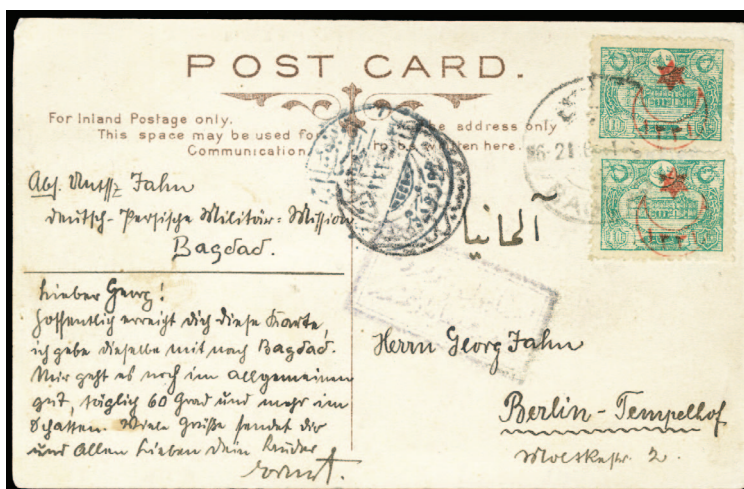 POST CARD.
For Inland Postage only.
This space may be used for
Communication.
address only
to be written here.
Abs. Untffz Jahn
Deutsch-Persische Militär-Mission
Bagdad.
Lieber Georg!
Hoffentlich erreicht dich diese Karte,
ich gebe dieselbe mit nach Bagdad.
Mir geht es noch im allgemeinen
gut, täglich 60 Grad und mehr im
Schatten. Viele Grüße sendet dir
und Allen Lieben Dein Bruder
Ernst.
المانيا
Herrn Georg Jahn
Berlin-Tempelhof
Moltkestr. 2.
10
10
10